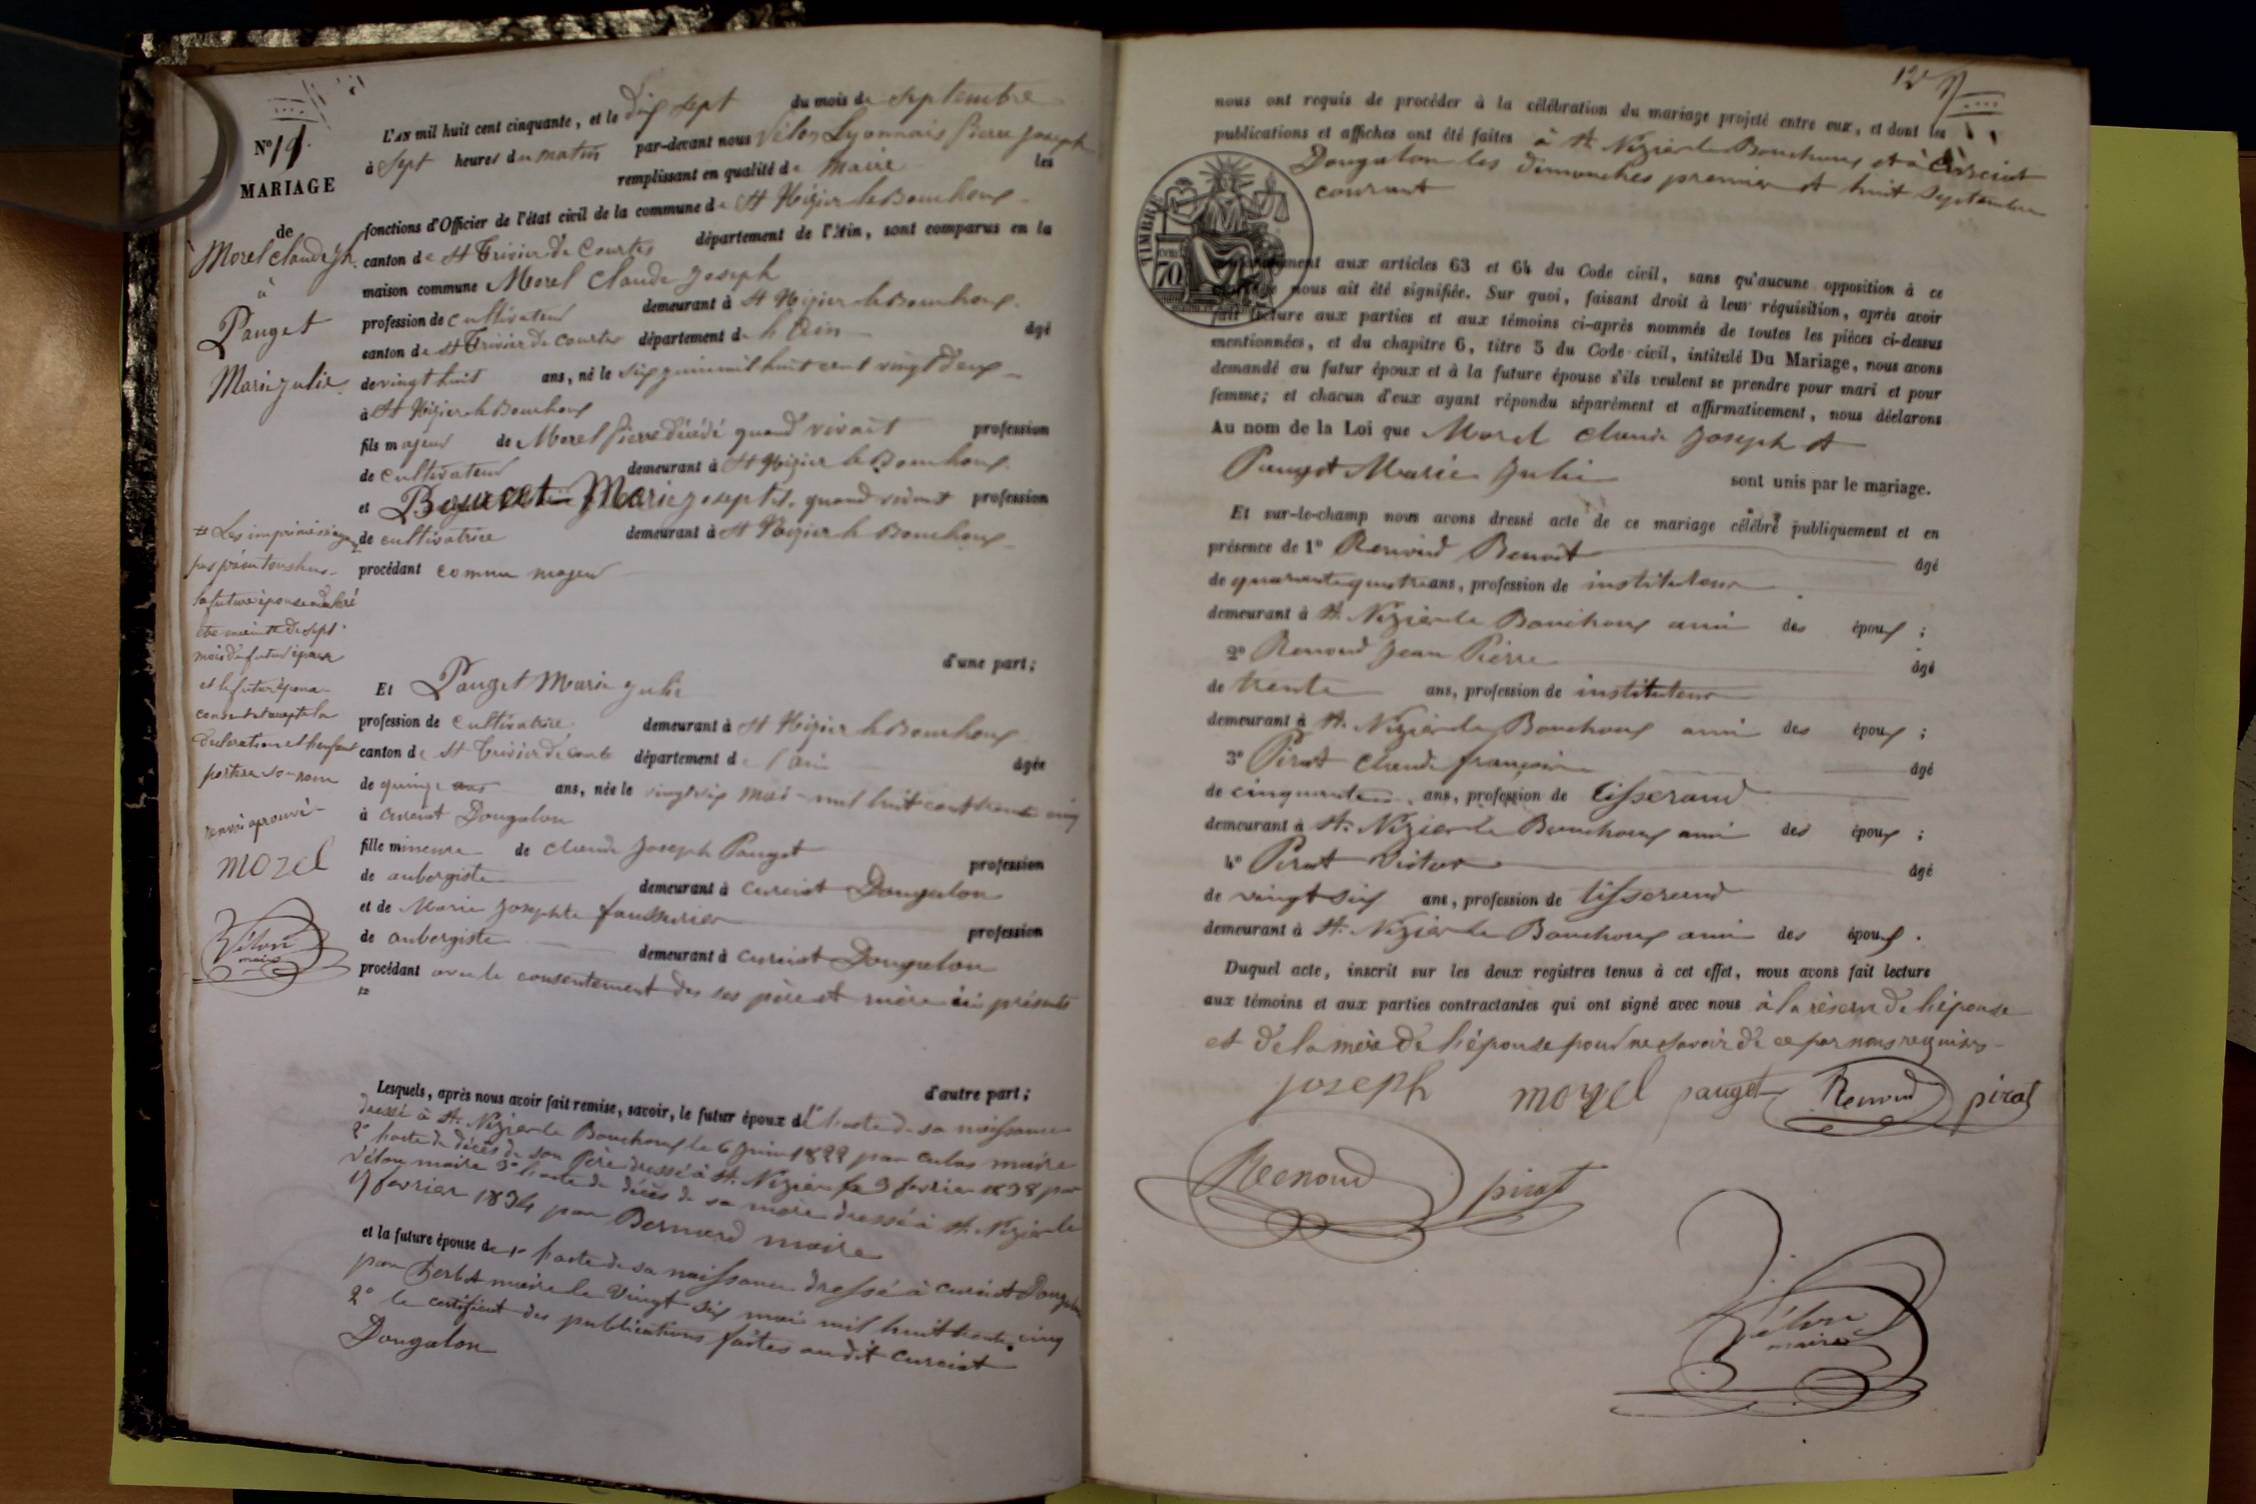 N° 11.
MARIAGE
de
Morel Claude Jh.
à
Pauget
Marie Julie.
L'AN mil huit cent cinquante, et le dix sept du mois de septembre
à sept heures du matin par-devant nous Vélon Lyonnais Pierre Joseph
remplissant en qualité de maire les
fonctions d'Officier de l'état civil de la commune de St Nizier le Bouchoux
canton de St Trivier de Courtes département de l'Ain, sont comparus en la
maison commune Morel Claude Joseph
profession de cultivateur demeurant à St Nizier le Bouchoux.
canton de St Trivier de Courtes département de l'Ain âgé
de vingt huit ans, né le six juin mil huit cent vingt deux
à St Nizier le Bouchoux
fils majeur de Morel Pierre décédé quand vivait profession
de cultivateur demeurant à St Nizier le Bouchoux.
et Marie Josephte. quand vivait profession
de cultivatrice demeurant à St Nizier le Bouchoux
procédant comme majeur
d'une part;
la future épouse a déclaré
être enceinte de sept
mois du futur époux
et le futur époux
consent et accepte la
déclaration et l'enfant
portera son nom
renvoi aprouvé
morel
Vélon
maire
Et Pauget Marie Julie
profession de cultivatrice demeurant à St Nizier le Bouchoux
canton de St Trivier de Courte département de l'Ain âgée
de quinze ans ans, née le vingt six mai mil huit cent trente cinq
à Curciat Dongalon
fille mineure de Claude Joseph Pauget profession
de aubergiste demeurant à Curciat Dongalon
et de Marie Josephte profession
de aubergiste demeurant à Curciat Dongalon
procédant avec le consentement des ses père et mère ici présents
12
d'autre part;
Lesquels, après nous avoir fait remise, savoir, le futur époux de 1° l'acte de sa naissance
dressé à St. Nizier le Bouchoux le 6 juin 1822 par maire
2° l'acte de décès de son Père dressé à St. Nizier le 3 fevrier 1838 par
Vélon maire 3° l'acte de décès de sa mère dressé à St. Nizier le
17 fevrier 1834 par Bernard maire
et la future épouse de 1° l'acte de sa naissance dressé à Curciat Dongalon
par maire le vingt six mai mil huit trente cinq
2° le certificat des publications faites audit Curciat
Dongalon
nous ont requis de procéder à la célébration du mariage projeté entre eux, et dont les
publications et affiches ont été faites à St Nizier le Bouchoux et à Curciat
Dongalon les dimanches premier et huit septembre
courant
TIMBRE
70
aux articles 63 et 64 du Code civil, sans qu'aucune opposition à ce
nous ait été signifiée. Sur quoi, faisant droit à leur réquisition, après avoir
fait lecture aux parties et aux témoins ci-après nommés de toutes les pièces ci-dessus
mentionnées, et du chapitre 6, titre 5 du Code civil, intitulé Du Mariage, nous avons
demandé au futur époux et à la future épouse s'ils veulent se prendre pour mari et pour
femme; et chacun d'eux ayant répondu séparément et affirmativement, nous déclarons
Au nom de la Loi que Morel Claude Joseph et
Pauget Marie Julie sont unis par le mariage.
Et sur-le-champ nous avons dressé acte de ce mariage célébré publiquement et en
présence de 1° Renoud Benoit âgé
de quarante quatre ans, profession de instituteur
demeurant à St. Nizier le Bouchoux ami des époux ;
2° Renoud Jean Pierre âgé
de trente ans, profession de instituteur
demeurant à St. Nizier le Bouchoux ami des époux ;
3° Pirat Claude françois âgé
de cinquante ans, profession de tisserand
demeurant à St. Nizier le Bouchoux ami des époux ;
4° Pirat Victor âgé
de vingt six ans, profession de tisserand
demeurant à St. Nizier le Bouchoux ami des époux.
Duquel acte, inscrit sur les deux registres tenus à cet effet, nous avons fait lecture
aux témoins et aux parties contractantes qui ont signé avec nous à la réserve de l'épouse
et de la mère de l'épouse pour ne savoir de ce par nous requises
joseph morel pauget Renoud pirat
Renoud pirat
Vélon
maire